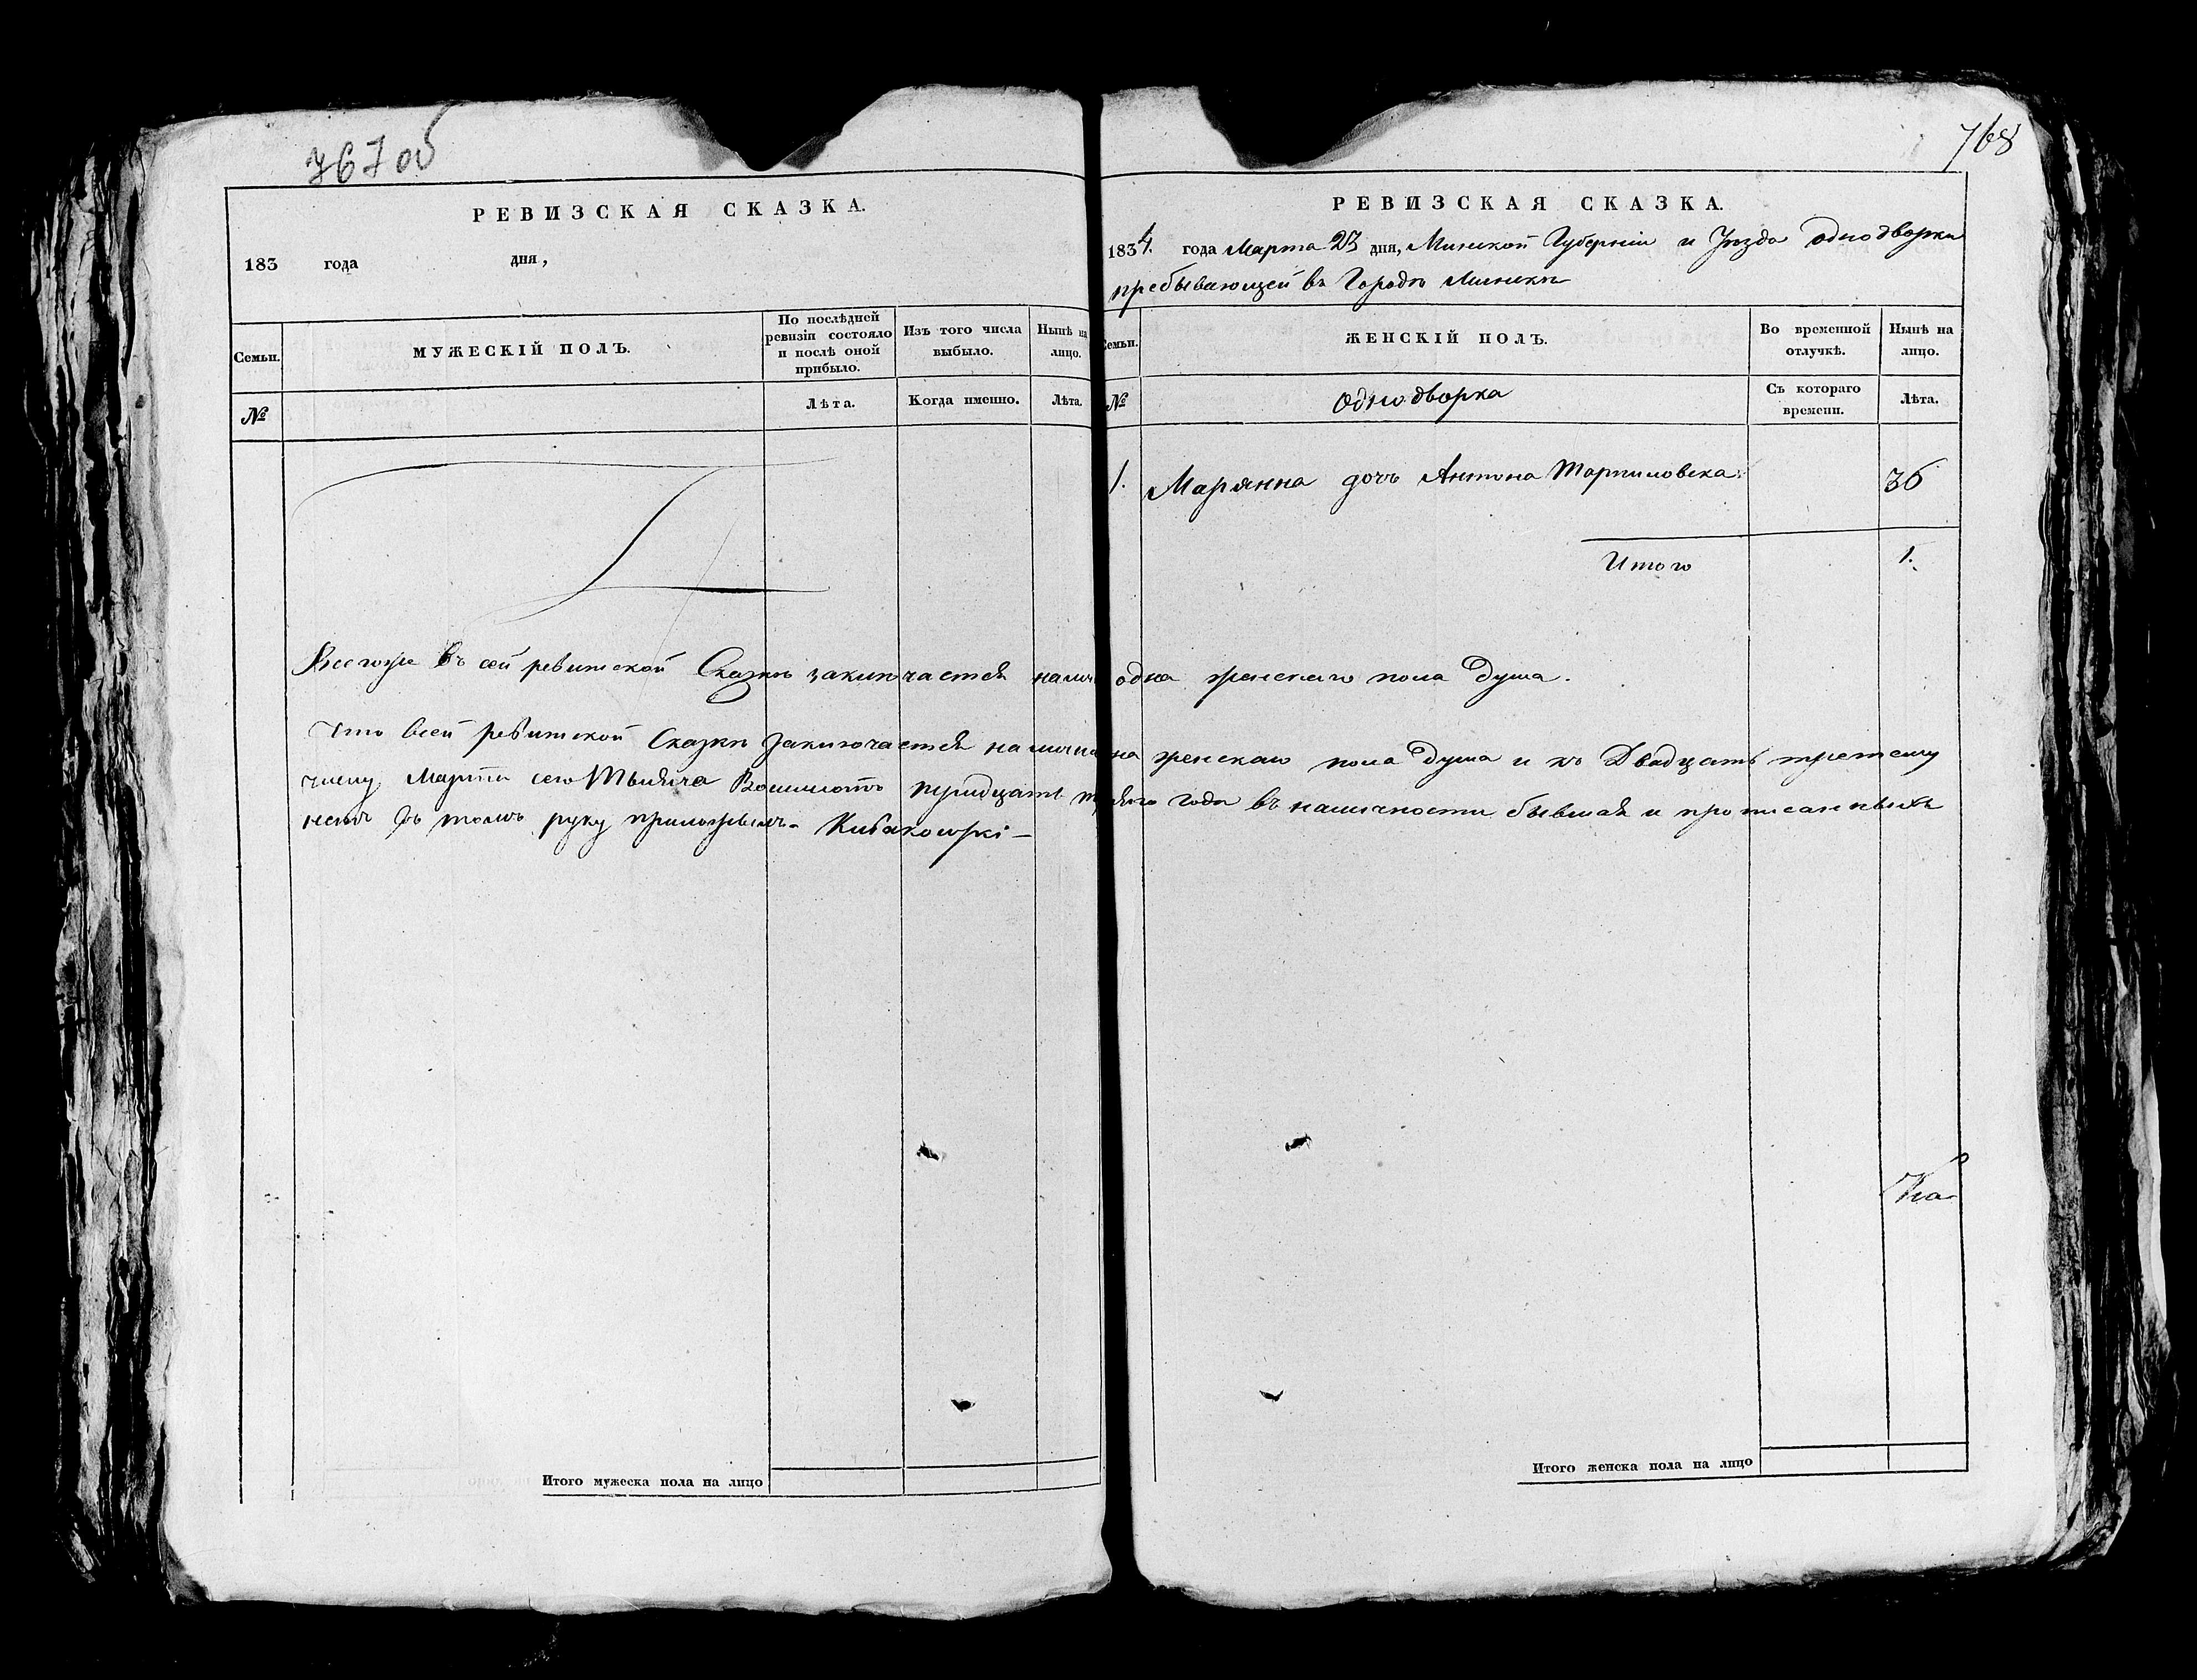 767 об
РЕВИЗСКАЯ СКАЗКА.
183 года дня,
Семьи.
МУЖЕСКІЙ ПОЛЪ.
По послѣдней ревизіи состояло и послѣ оной прибыло.
Изъ того числа выбыло.
Нынѣ на лицо.
№
Лѣта.
Когда именно.
Лѣта.
768
РЕВИЗСКАЯ СКАЗКА.
1834. года Марта 23 дня, Минской Губерніи и Уѣзда однодворки
пребывающей въ Городѣ Минскѣ
Семьи.
ЖЕНСКІЙ ПОЛЪ.
Во временной отлучкѣ.
Нынѣ на лицо.
№
Однодворка
Съ котораго времени.
Лѣта.
1. Марянна дочь Антона 36
Итого 1.
Всего въ сей ревизской Сказкѣ заключается одна женскаго пола душа.
Что в сей ревизской Сказкѣ заключается женскаго пола душа и къ Двадцать третему
числу Марта сего Тысяча годы въ наличности бывшая и прописанныхъ
нетъ въ томъ руку приложилъ -
Итого мужеска пола на лицо
Итого женска пола на лицо